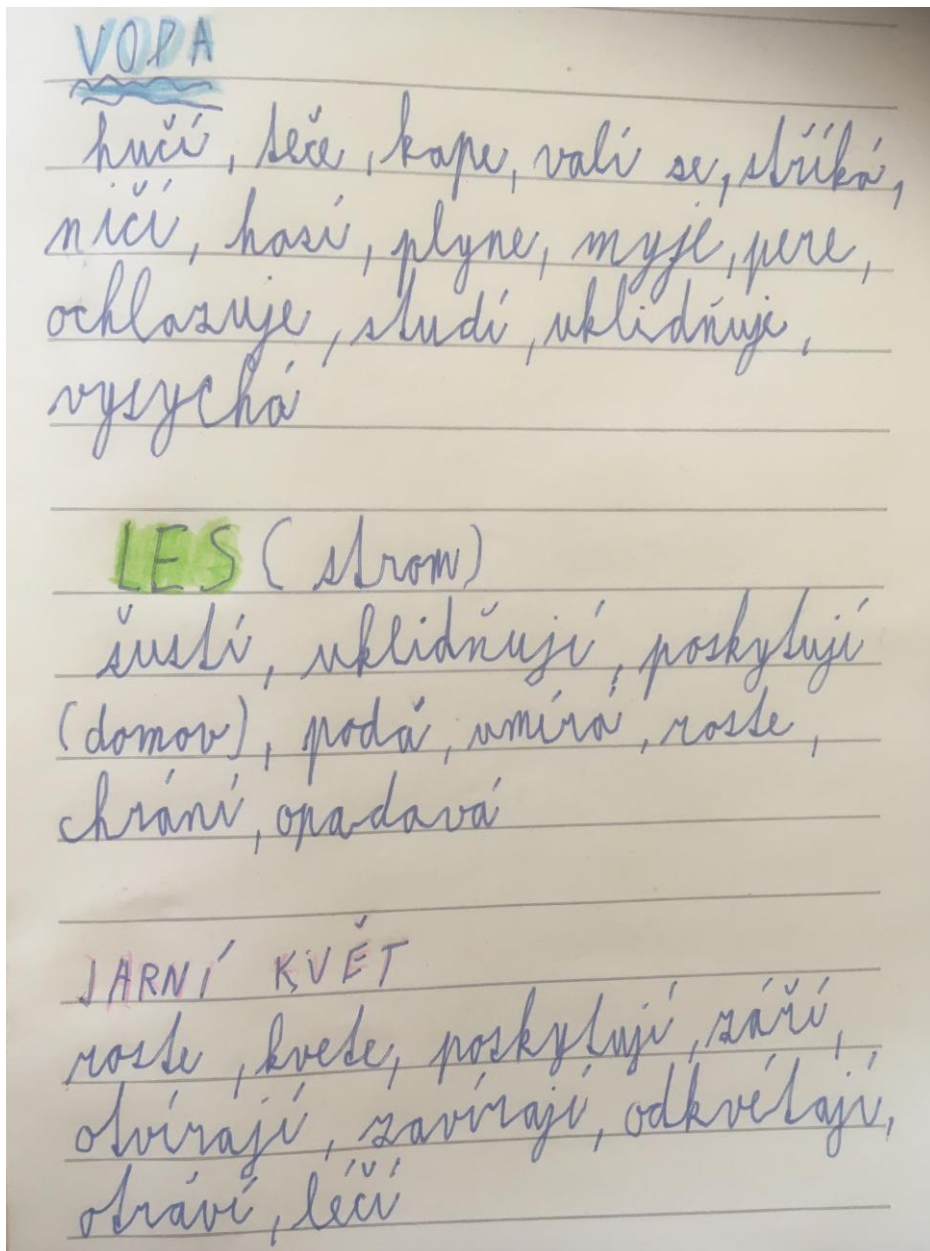 VODA
hučí, teče, kape, valí se, stříká,
ničí, hasí, plyne, myje, pere,
ochlazuje, studí, uklidňuje,
vysychá
LES (strom)
šustí, uklidňují, poskytují
(domov), podá, umírá, roste,
chrání, opadavá
JARNÍ KVĚT
roste, kvete, poskytují, září,
otvírají, zavírají, odkvétají,
otráví, léčí